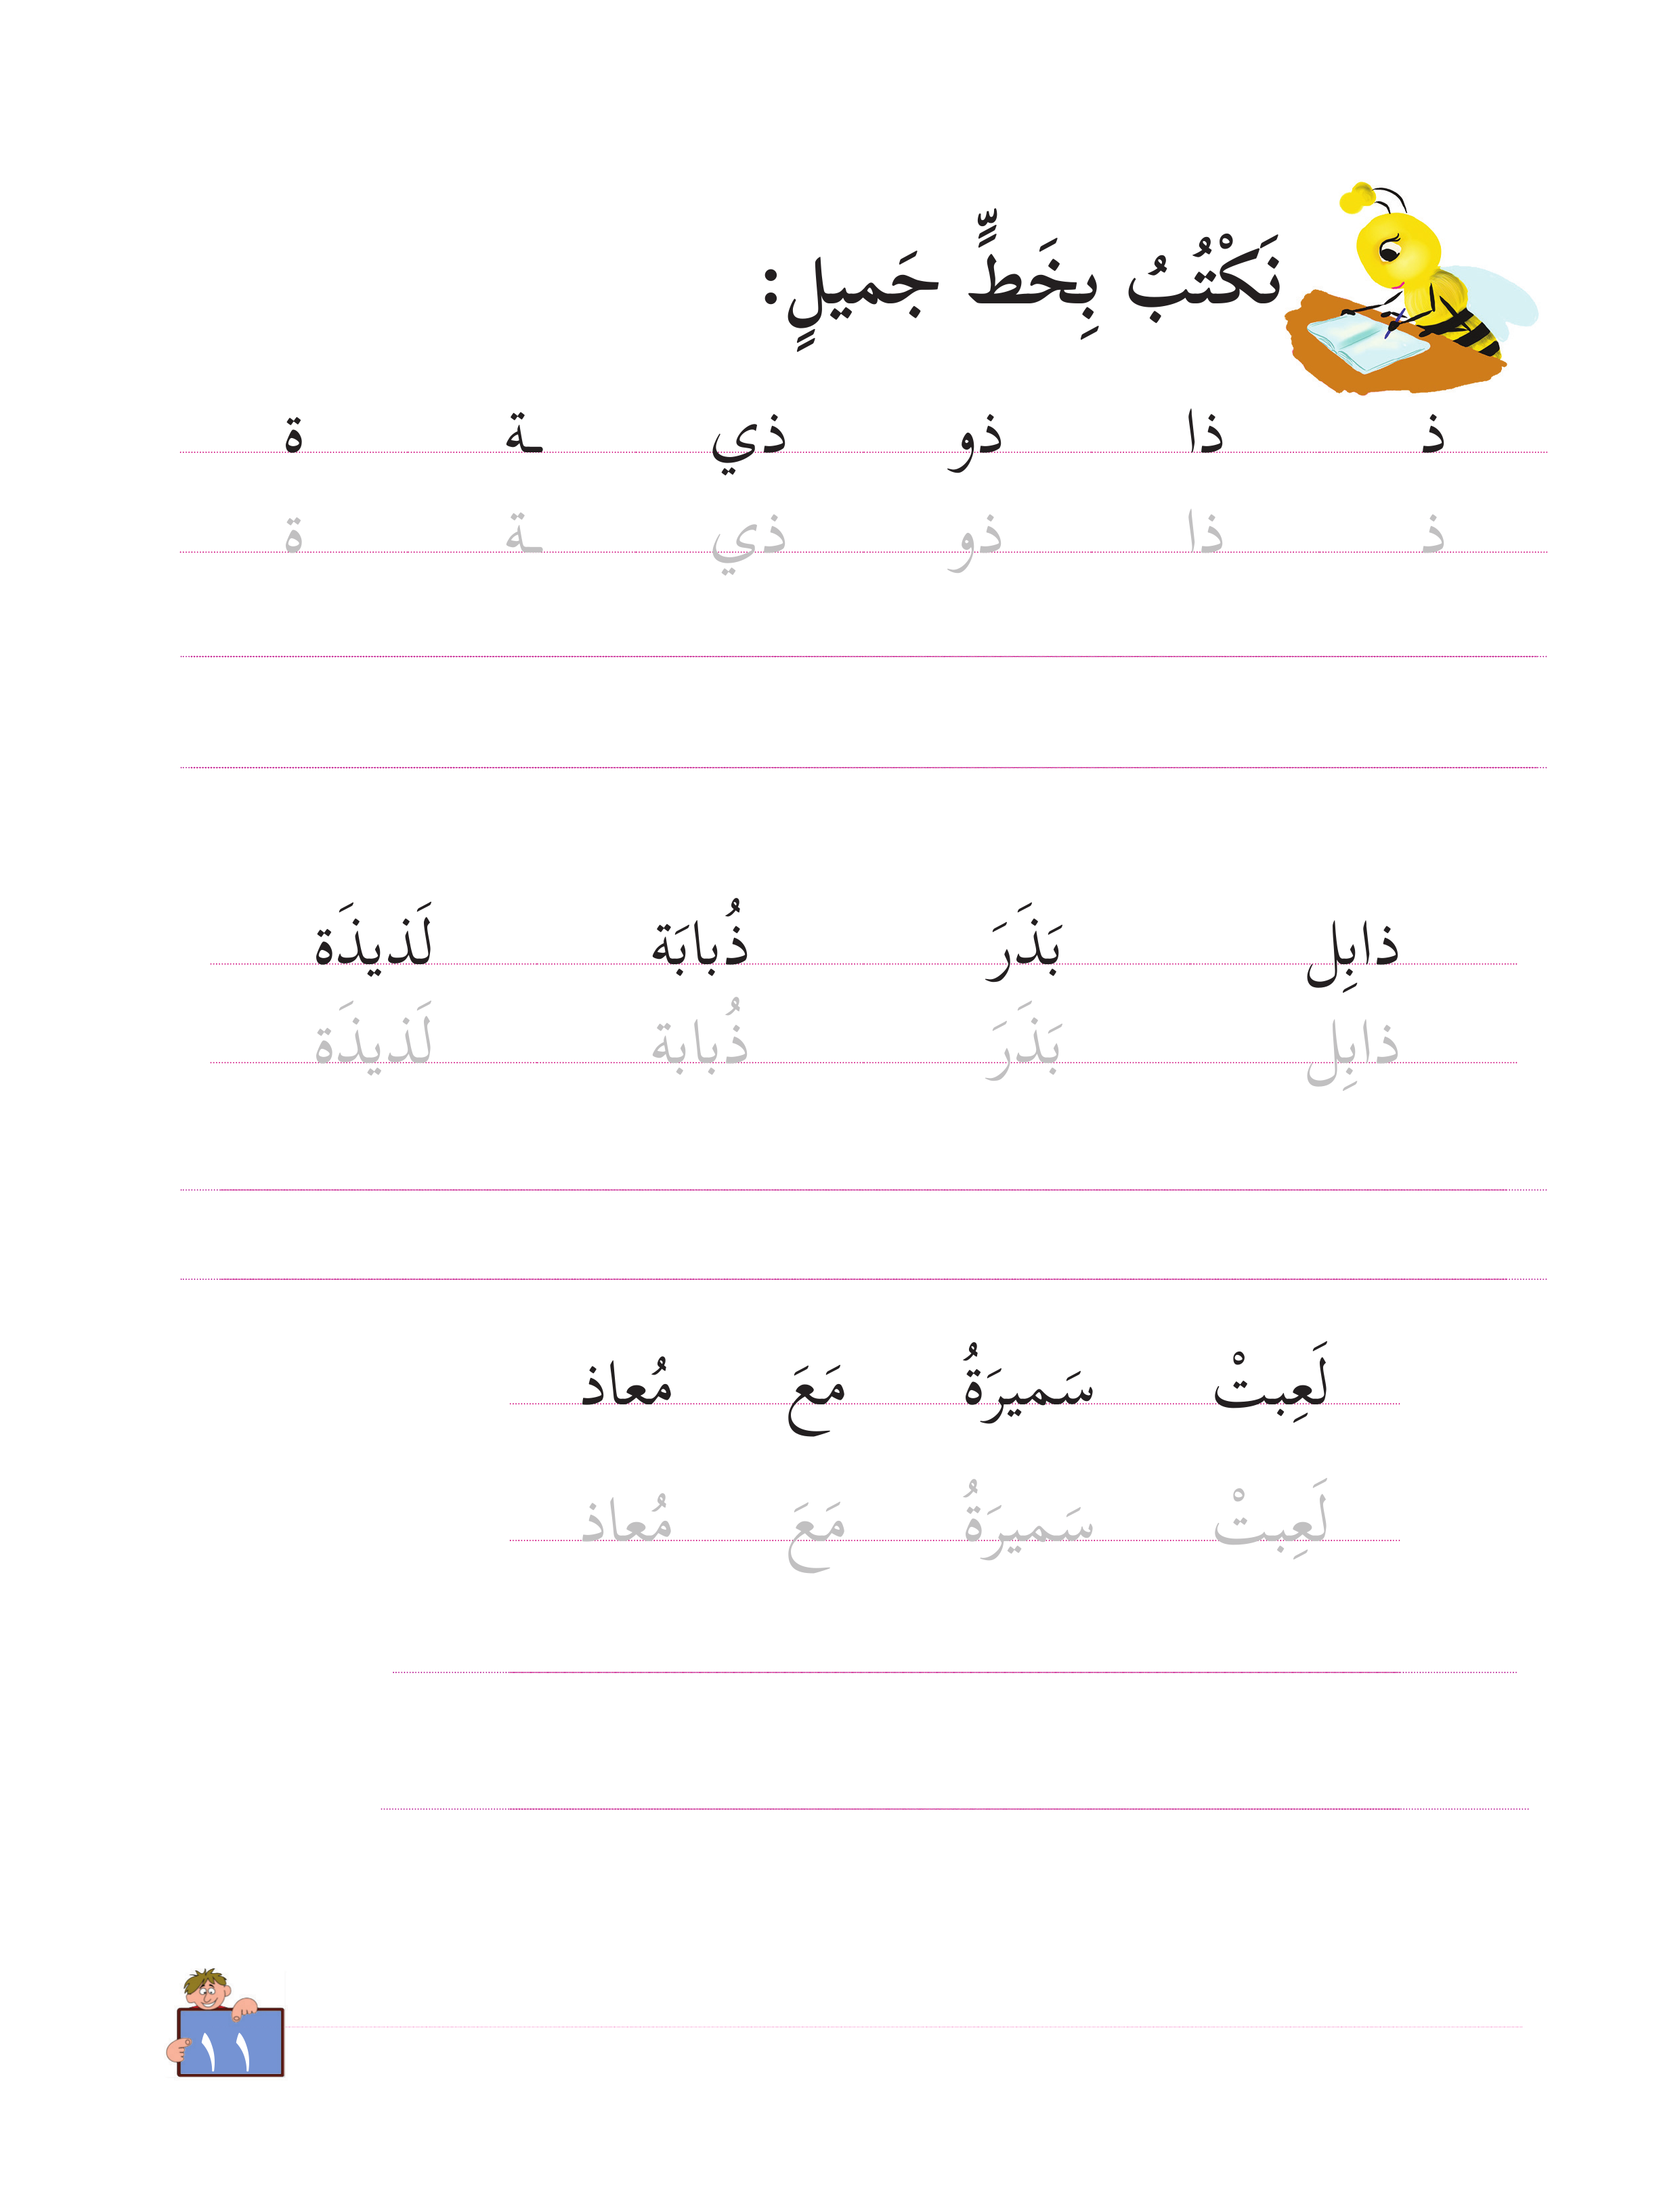 نَكْتُبُ بِخَطٍّ جَميلٍ:
ذ ذا ذو ذي ـة ة
ذ ذا ذو ذي ـة ة
ذابِل بَذَرَ ذُبابَة لَذيذَة
ذابِل بَذَرَ ذُبابَة لَذيذَة
لَعِبتْ سَميرَةُ مَعَ مُعاذ
لَعِبتْ سَميرَةُ مَعَ مُعاذ
١١